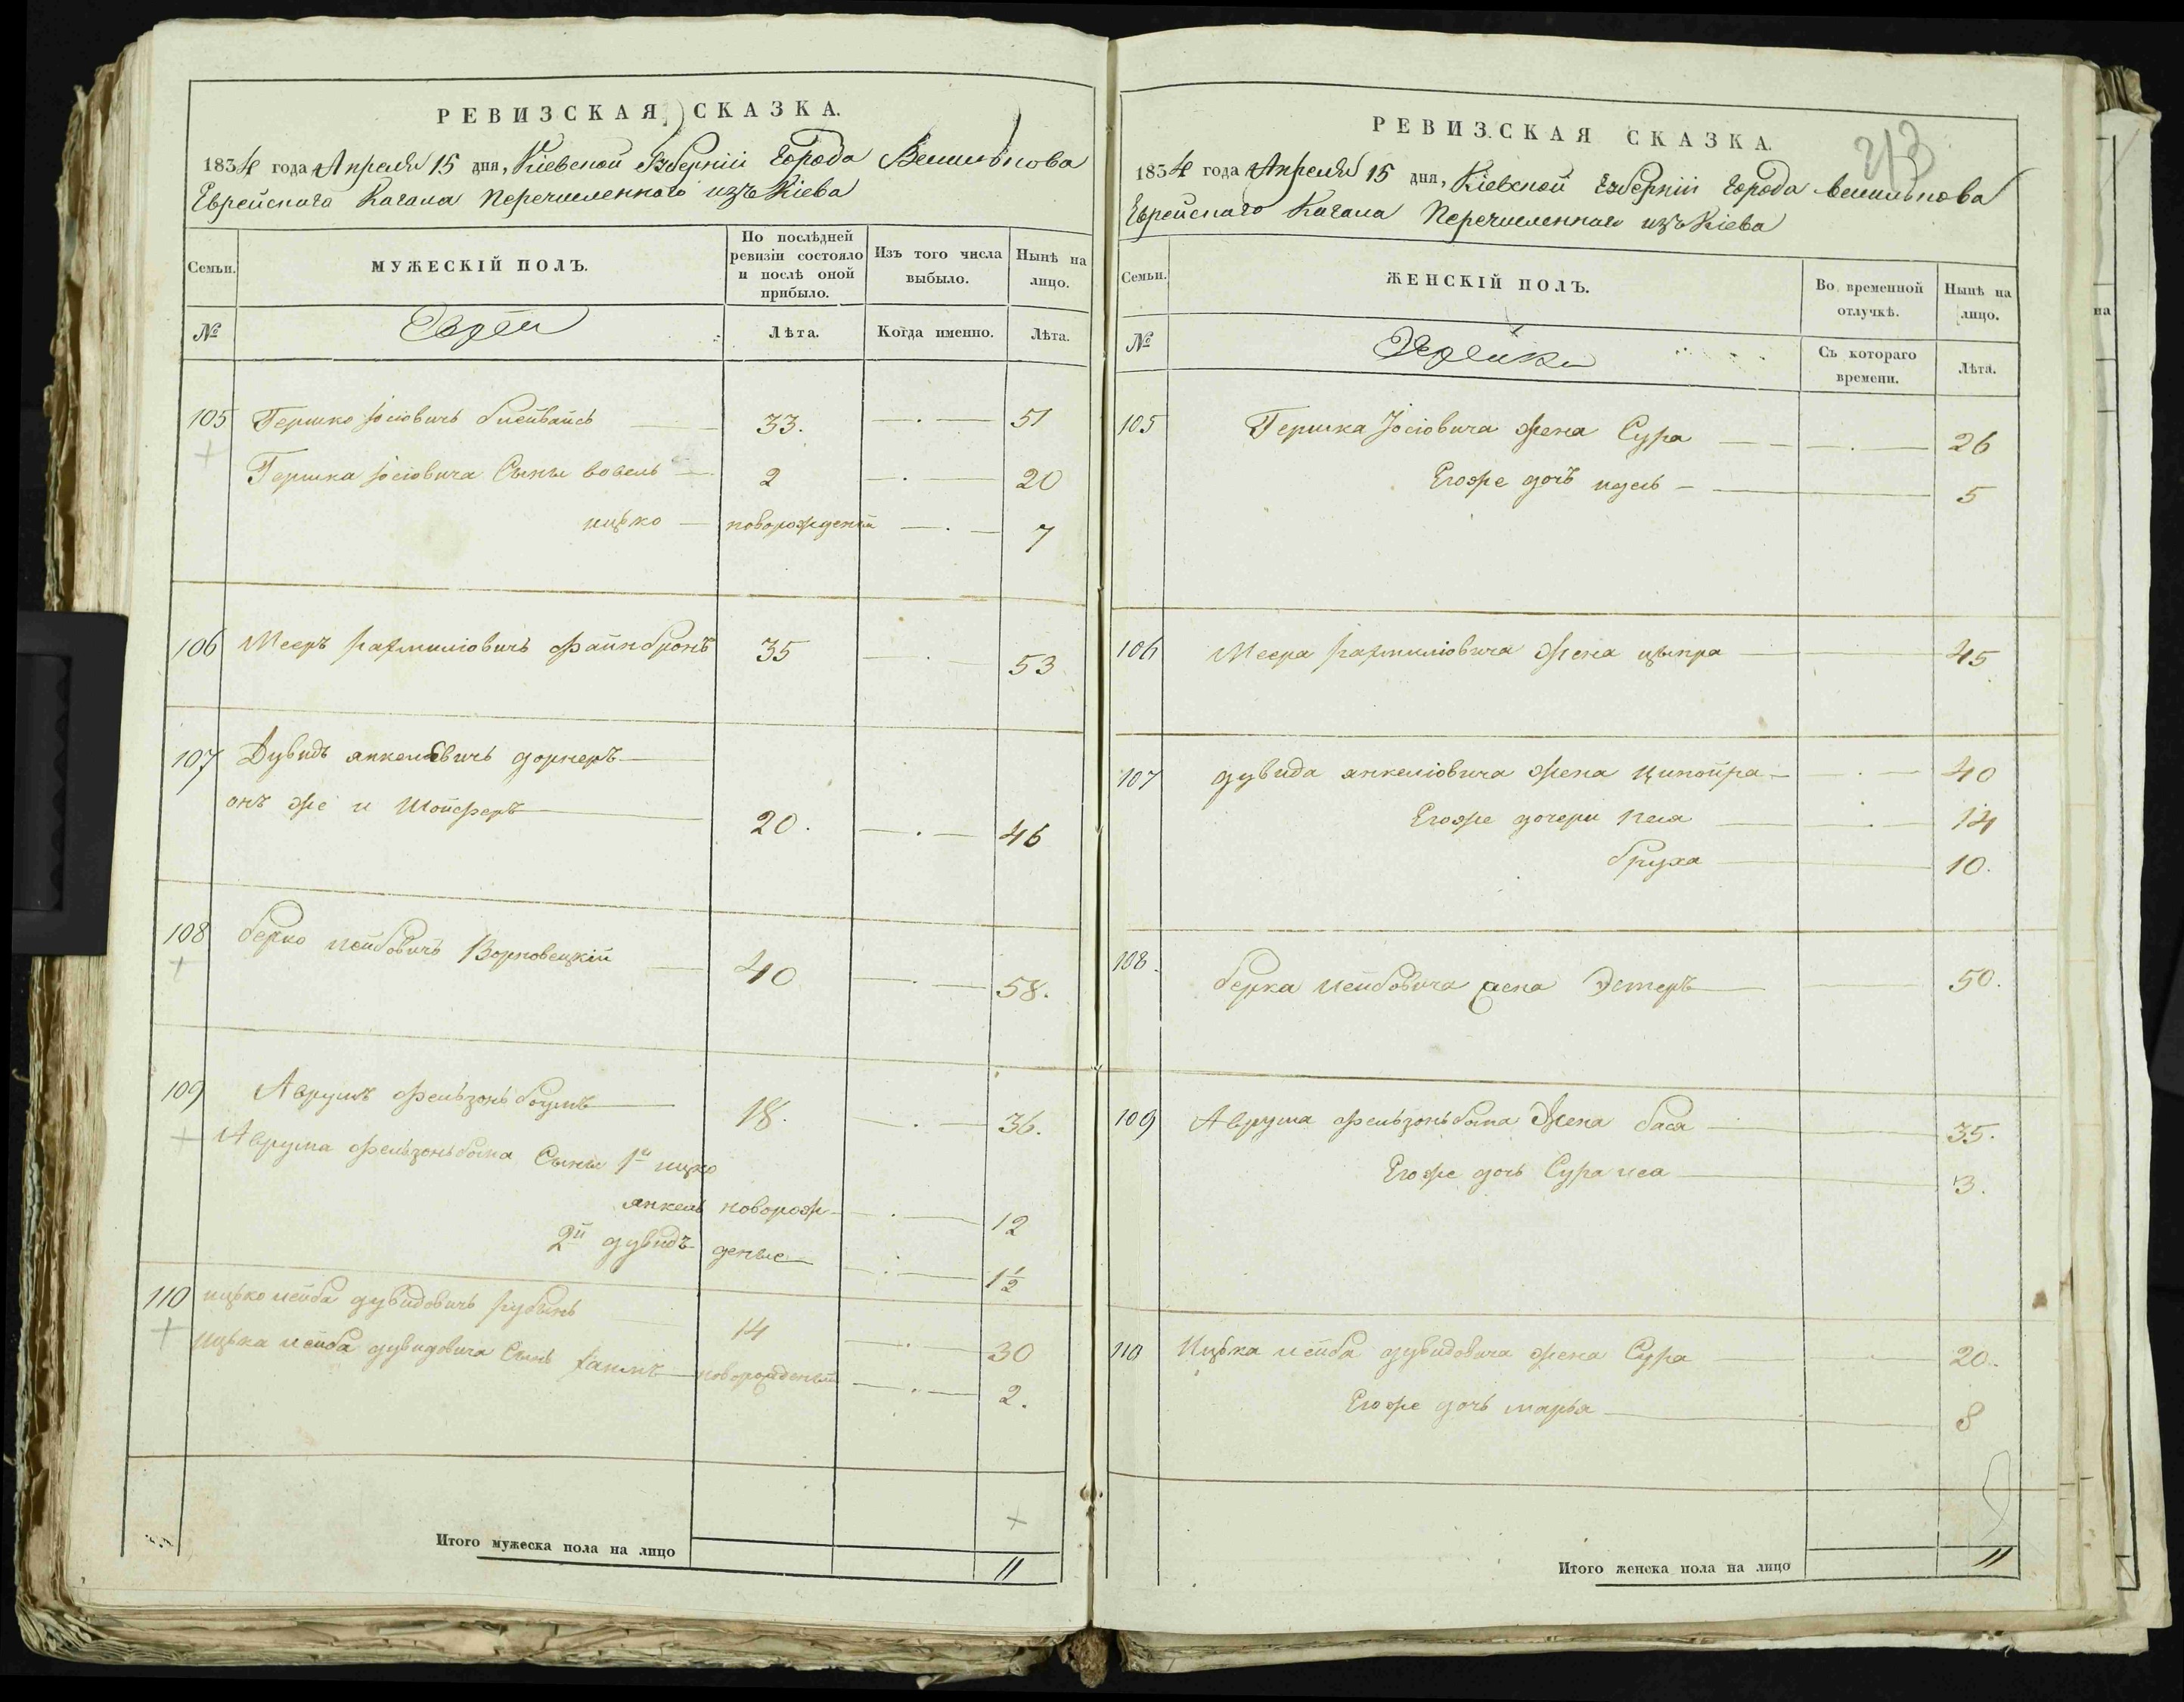 РЕВИЗСКАЯ СКАЗКА.
1834 года Апреля 15 дня, Кіевской Губерніи Города Василькова
Еврейскаго Кагала Перечисленнаго изъ Кіева
Семьи.
МУЖЕСКІЙ ПОЛЪ.
По послѣдней ревизіи состояло и послѣ оной прибыло.
Изъ того числа выбыло.
Нынѣ на лицо.
№
Евреи
Лѣта.
Когда именно.
Лѣта.
105 Гершко Іосіовичъ 33. 51
Гершка Іосіовича Сыны вовель 2 20
ицько новорожденй 7
106 Мееръ Рахмиліовичъ Файнбронъ 35 53
107 Дувидъ янкеліовичъ дорнеръ
онъ же и Шойферъ 20. 46
108 берко лейбовичъ 40 58.
109 Аврумъ Фельзонбоумъ 18. 36.
Аврума Фельзонбома Сыны 1й ицко
янкель новорож 12
2й дувидъ деные 1 1/2
110 ицько лейба дувидовичъ рубинъ 14 30
ицька лейба дувидовича Сынъ хаимъ новорожденый 2.
Итого мужеска пола на лицо 11
РЕВИЗСКАЯ СКАЗКА.
213
1834 года Апреля 15 дня, Кіевской Губерніи Города Василькова
Еврейскаго Кагала Перечисленнаго изъ Кіева
Семьи.
ЖЕНСКІЙ ПОЛЪ.
Во временной отлучкѣ.
Нынѣ на лицо.
№
Еврейки
Съ котораго времени.
Лѣта.
105 Гершка Іосіовича жена Сура 26
Егоже дочъ идесь 5
106 Меера рахмиліовича жена ципра 45
107 дувида янкеліовича жена ципойра 40
Егоже дочери песя 14
бруха 10.
108. берка лейбовича жена Эстеръ 50.
109 Аврума Фельзонбома Жена бася 35.
Егоже дочь Сура лея 3.
110 Ицька лейба дувидовича жена Сура 20.
Егоже дочь марья 8
Итого женска пола на лицо 11
на